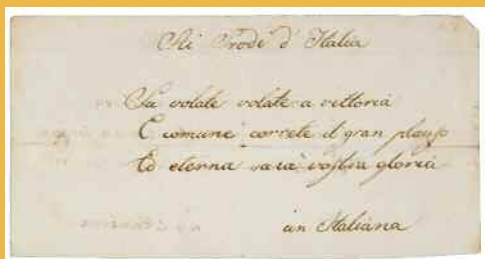 Ai Prodi d'Italia
Su volate volate a vittoria
È comune correte il gran plauso
Ed eterna sarà vostra gloria
un Italiana